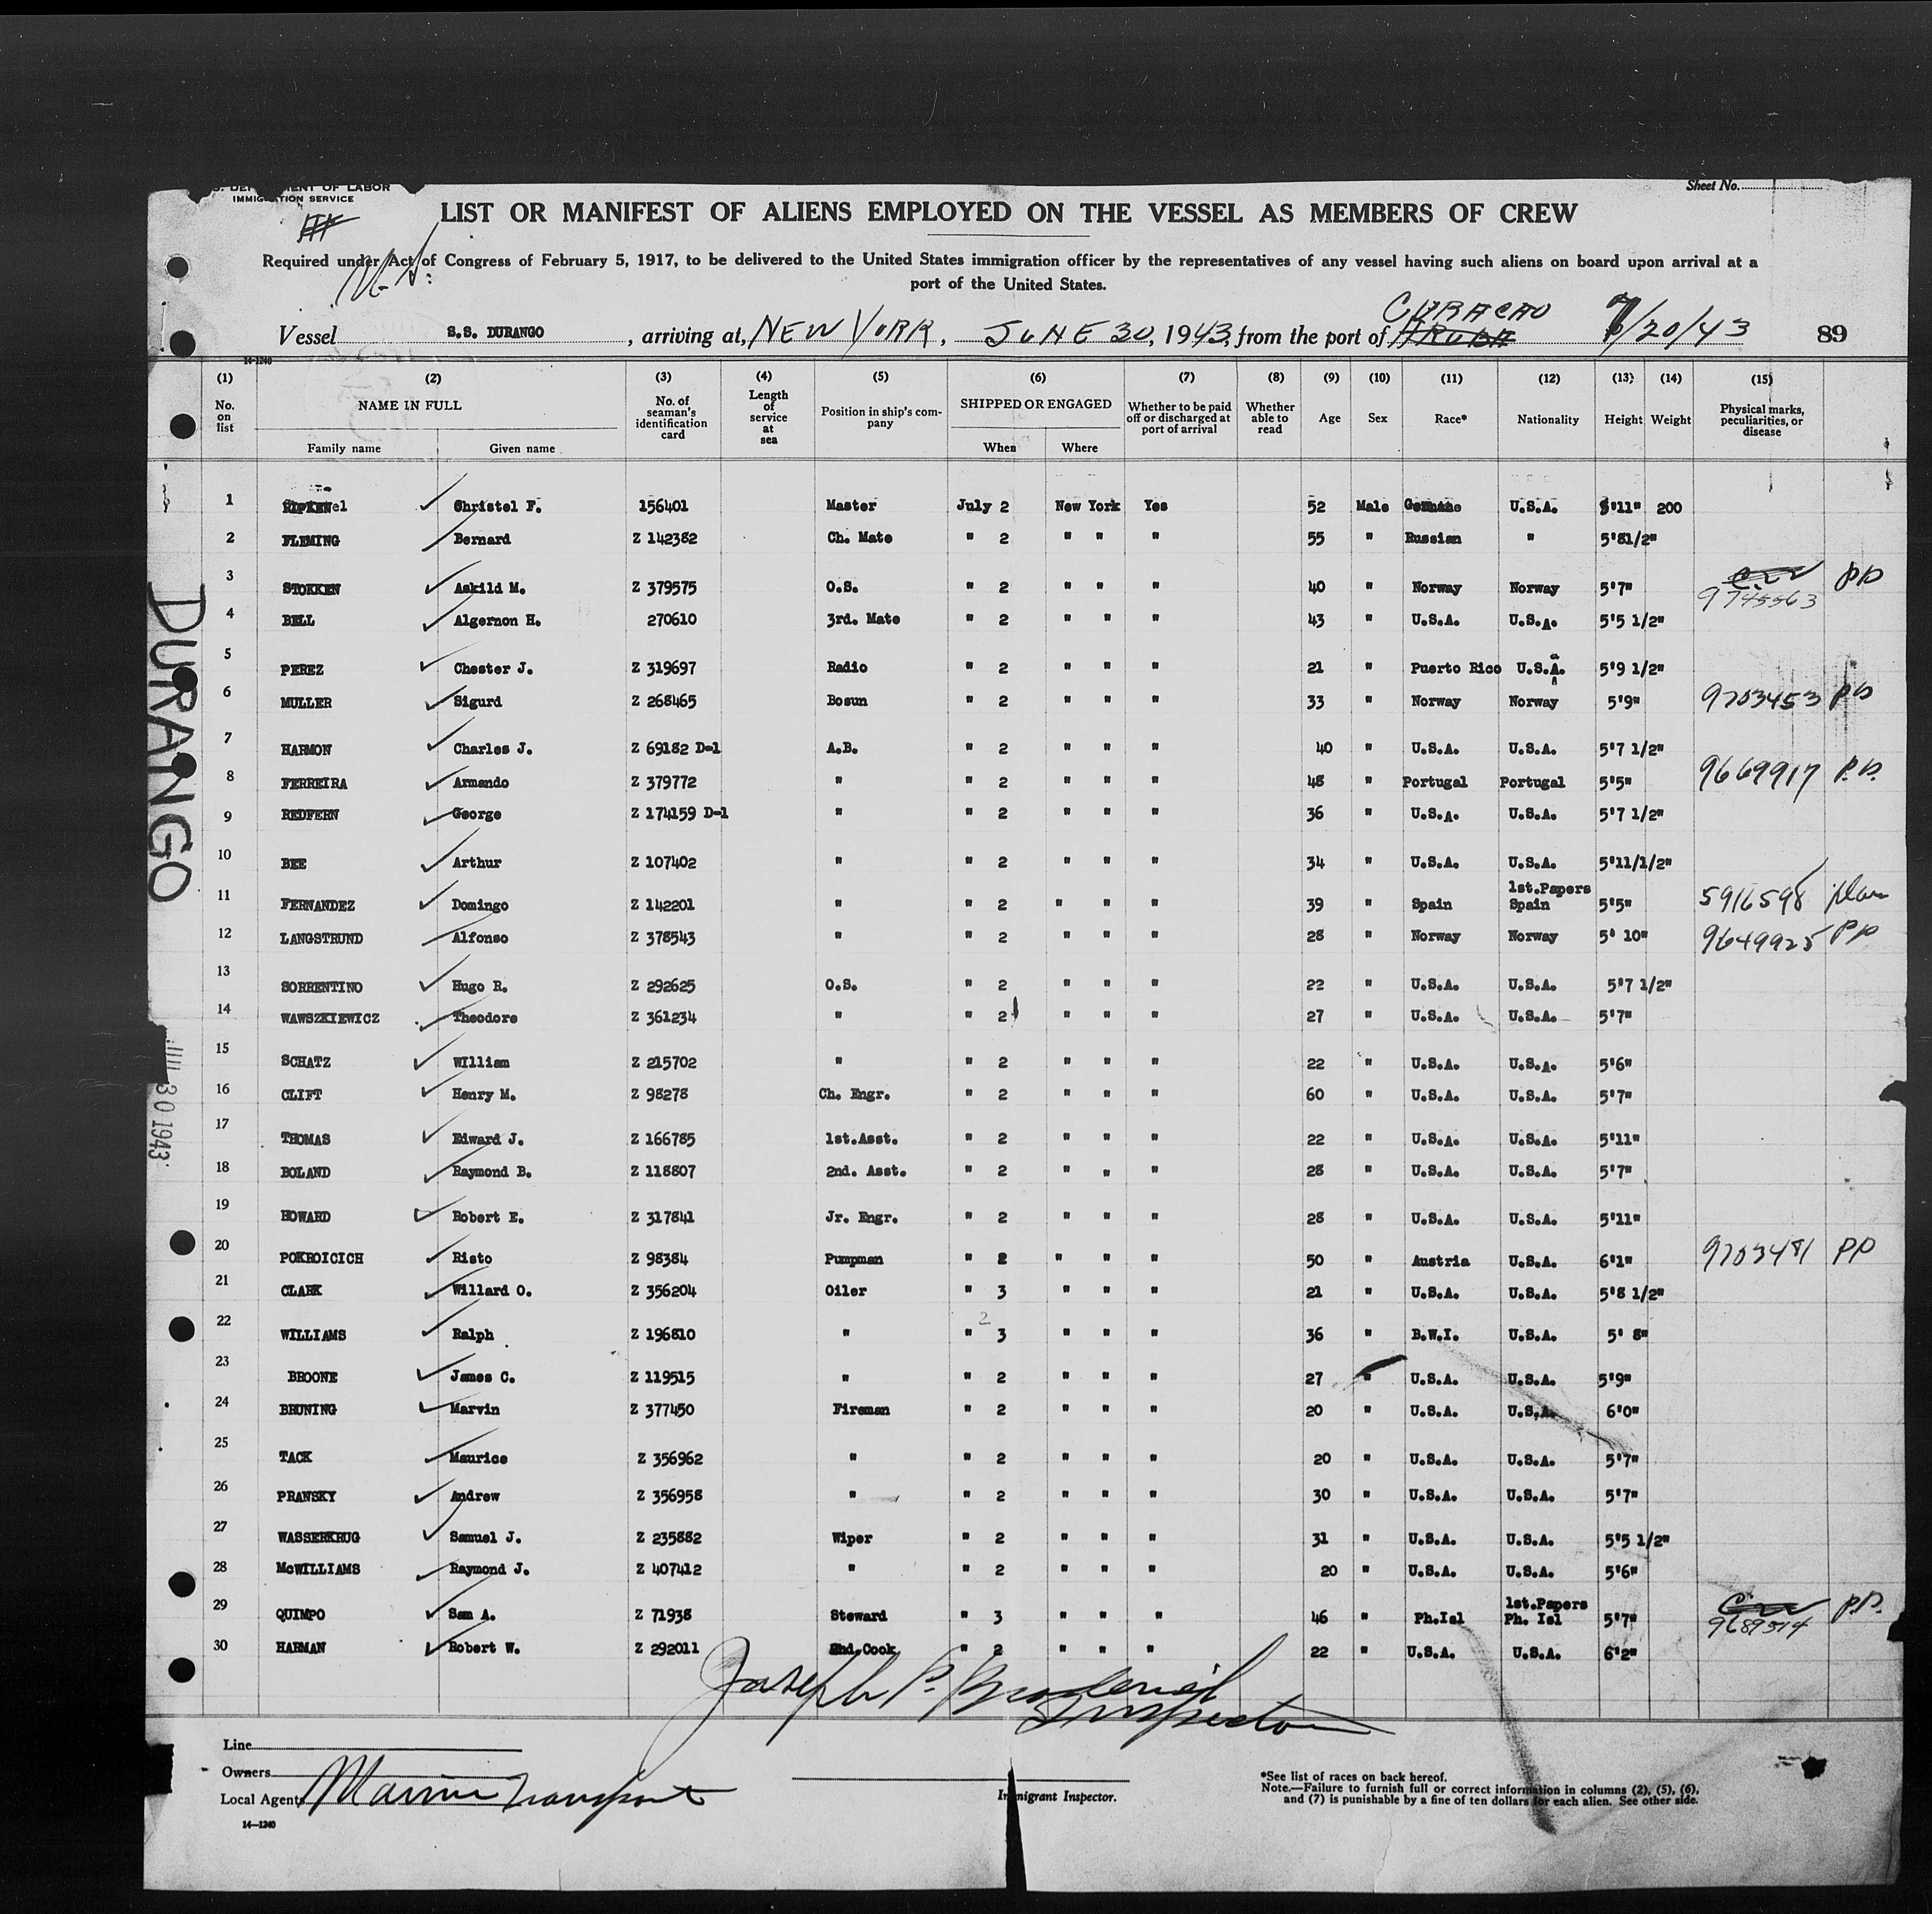 DEPARTMENT OF LABOR
IMMIGRATION SERVICE
Sheet No.
LIST OR MANIFEST OF ALIENS EMPLOYED ON THE VESSEL AS MEMBERS OF CREW
Required under Act of Congress of February 5, 1917, to be delivered to the United States immigration officer by the representatives of any vessel having such aliens on board upon arrival at a
port of the United States.
Vessel S.S. DURANGO, arriving at, NEW YORK, JUNE 30, 1943, from the port of ARUBA CURACAO 7/20/43 89
14-1240
(1) (2) (3) (4) (5) (6) (7) (8) (9) (10) (11) (12) (13) (14) (15)
No. on list NAME IN FULL Family name Given name No. of seaman's identification card Length of service at sea Position in ship's company SHIPPED OR ENGAGED When Where Whether to be paid off or discharged at port of arrival Whether able to read Age Sex Race* Nationality Height Weight Physical marks, peculiarities, or disease
1 Christel F. 156401 Master July 2 New York Yes 52 Male U.S.A. 5'11" 200
2 FLEMING Bernard Z 142382 Ch. Mate " 2 " " " 55 " Russian " 5'81/2"
3 STOKKEN Askild M. Z 379575 O.S. " 2 " " " 40 " Norway Norway 5'7" 9745563 PP
4 BELL Algernon H. 270610 3rd. Mate " 2 " " " 43 " U.S.A. U.S.A. 5'5 1/2"
5 PEREZ Chester J. Z 319697 Radio " 2 " " " 21 " Puerto Rico U.S.A. 5'9 1/2"
6 MULLER Sigurd Z 268465 Bosun " 2 " " " 33 " Norway Norway 5'9" 9703453 PP
7 HARMON Charles J. Z 69182 D-1 A.B. " 2 " " " 40 " U.S.A. U.S.A. 5'7 1/2"
8 FERREIRA Armando Z 379772 " " 2 " " " 48 " Portugal Portugal 5'5" 9669917 P.P.
9 REDFERN George Z 174159 D-1 " " 2 " " " 36 " U.S.A. U.S.A. 5'7 1/2"
10 BEE Arthur Z 107402 " " 2 " " " 34 " U.S.A. U.S.A. 5'11/1/2"
11 FERNANDEZ Domingo Z 142201 " " 2 " " " 39 " Spain 1st.Papers Spain 5'5" 5916598
12 LANGSTRUND Alfonso Z 378543 " " 2 " " " 28 " Norway Norway 5' 10" 9649925 PP
13 SORRENTINO Hugo R. Z 292625 O.S. " 2 " " " 22 " U.S.A. U.S.A. 5'7 1/2"
14 WAWSZKIEWICZ Theodore Z 361234 " " 2 " " " 27 " U.S.A. U.S.A. 5'7"
15 SCHATZ William Z 215702 " " 2 " " " 22 " U.S.A. U.S.A. 5'6"
16 CLIFT Henry M. Z 98278 Ch. Engr. " 2 " " " 60 " U.S.A. U.S.A. 5'7"
17 THOMAS Edward J. Z 166785 1st.Asst. " 2 " " " 22 " U.S.A. U.S.A. 5'11"
18 BOLAND Raymond B. Z 118807 2nd. Asst. " 2 " " " 28 " U.S.A. U.S.A. 5'7"
19 HOWARD Robert E. Z 317841 Jr. Engr. " 2 " " " 28 " U.S.A. U.S.A. 5'11"
20 POKROICICH Risto Z 98384 Pumpman " 2 " " " 50 " Austria U.S.A. 6'1" 9703481 PP
21 CLARK Willard O. Z 356204 Oiler " 3 " " " 21 " U.S.A. U.S.A. 5'8 1/2"
22 WILLIAMS Ralph Z 196810 " " 3 2 " " " 36 " B.W.I. U.S.A. 5' 8"
23 BROONE James C. Z 119515 " " 2 " " " 27 " U.S.A. U.S.A. 5'9"
24 BRUNING Marvin Z 377450 Fireman " 2 " " " 20 " U.S.A. U.S.A. 6'0"
25 TACK Maurice Z 356962 " " 2 " " " 20 " U.S.A. U.S.A. 5'7"
26 PRANSKY Andrew Z 356958 " " 2 " " " 30 " U.S.A. U.S.A. 5'7"
27 WASSERKRUG Samuel J. Z 235882 Wiper " 2 " " " 31 " U.S.A. U.S.A. 5'5 1/2"
28 McWILLIAMS Raymond J. Z 407412 " " 2 " " " 20 " U.S.A. U.S.A. 5'6"
29 QUIMPO Sam A. Z 71938 Steward " 3 " " " 46 " Ph.Isl 1st.Papers Ph. Isl 5'7" 9689514 P.P.
30 HARMAN Robert W. Z 292011 2nd.Cook " 2 " " " 22 " U.S.A. U.S.A. 6'2"
Joseph P.
Inspector
Line
Owners
Local Agent Marine Transport
Immigrant Inspector.
*See list of races on back hereof.
Note.—Failure to furnish full or correct information in columns (2), (5), (6),
and (7) is punishable by a fine of ten dollars for each alien. See other side.
14—1240
DURANGO
JUL 30 1943